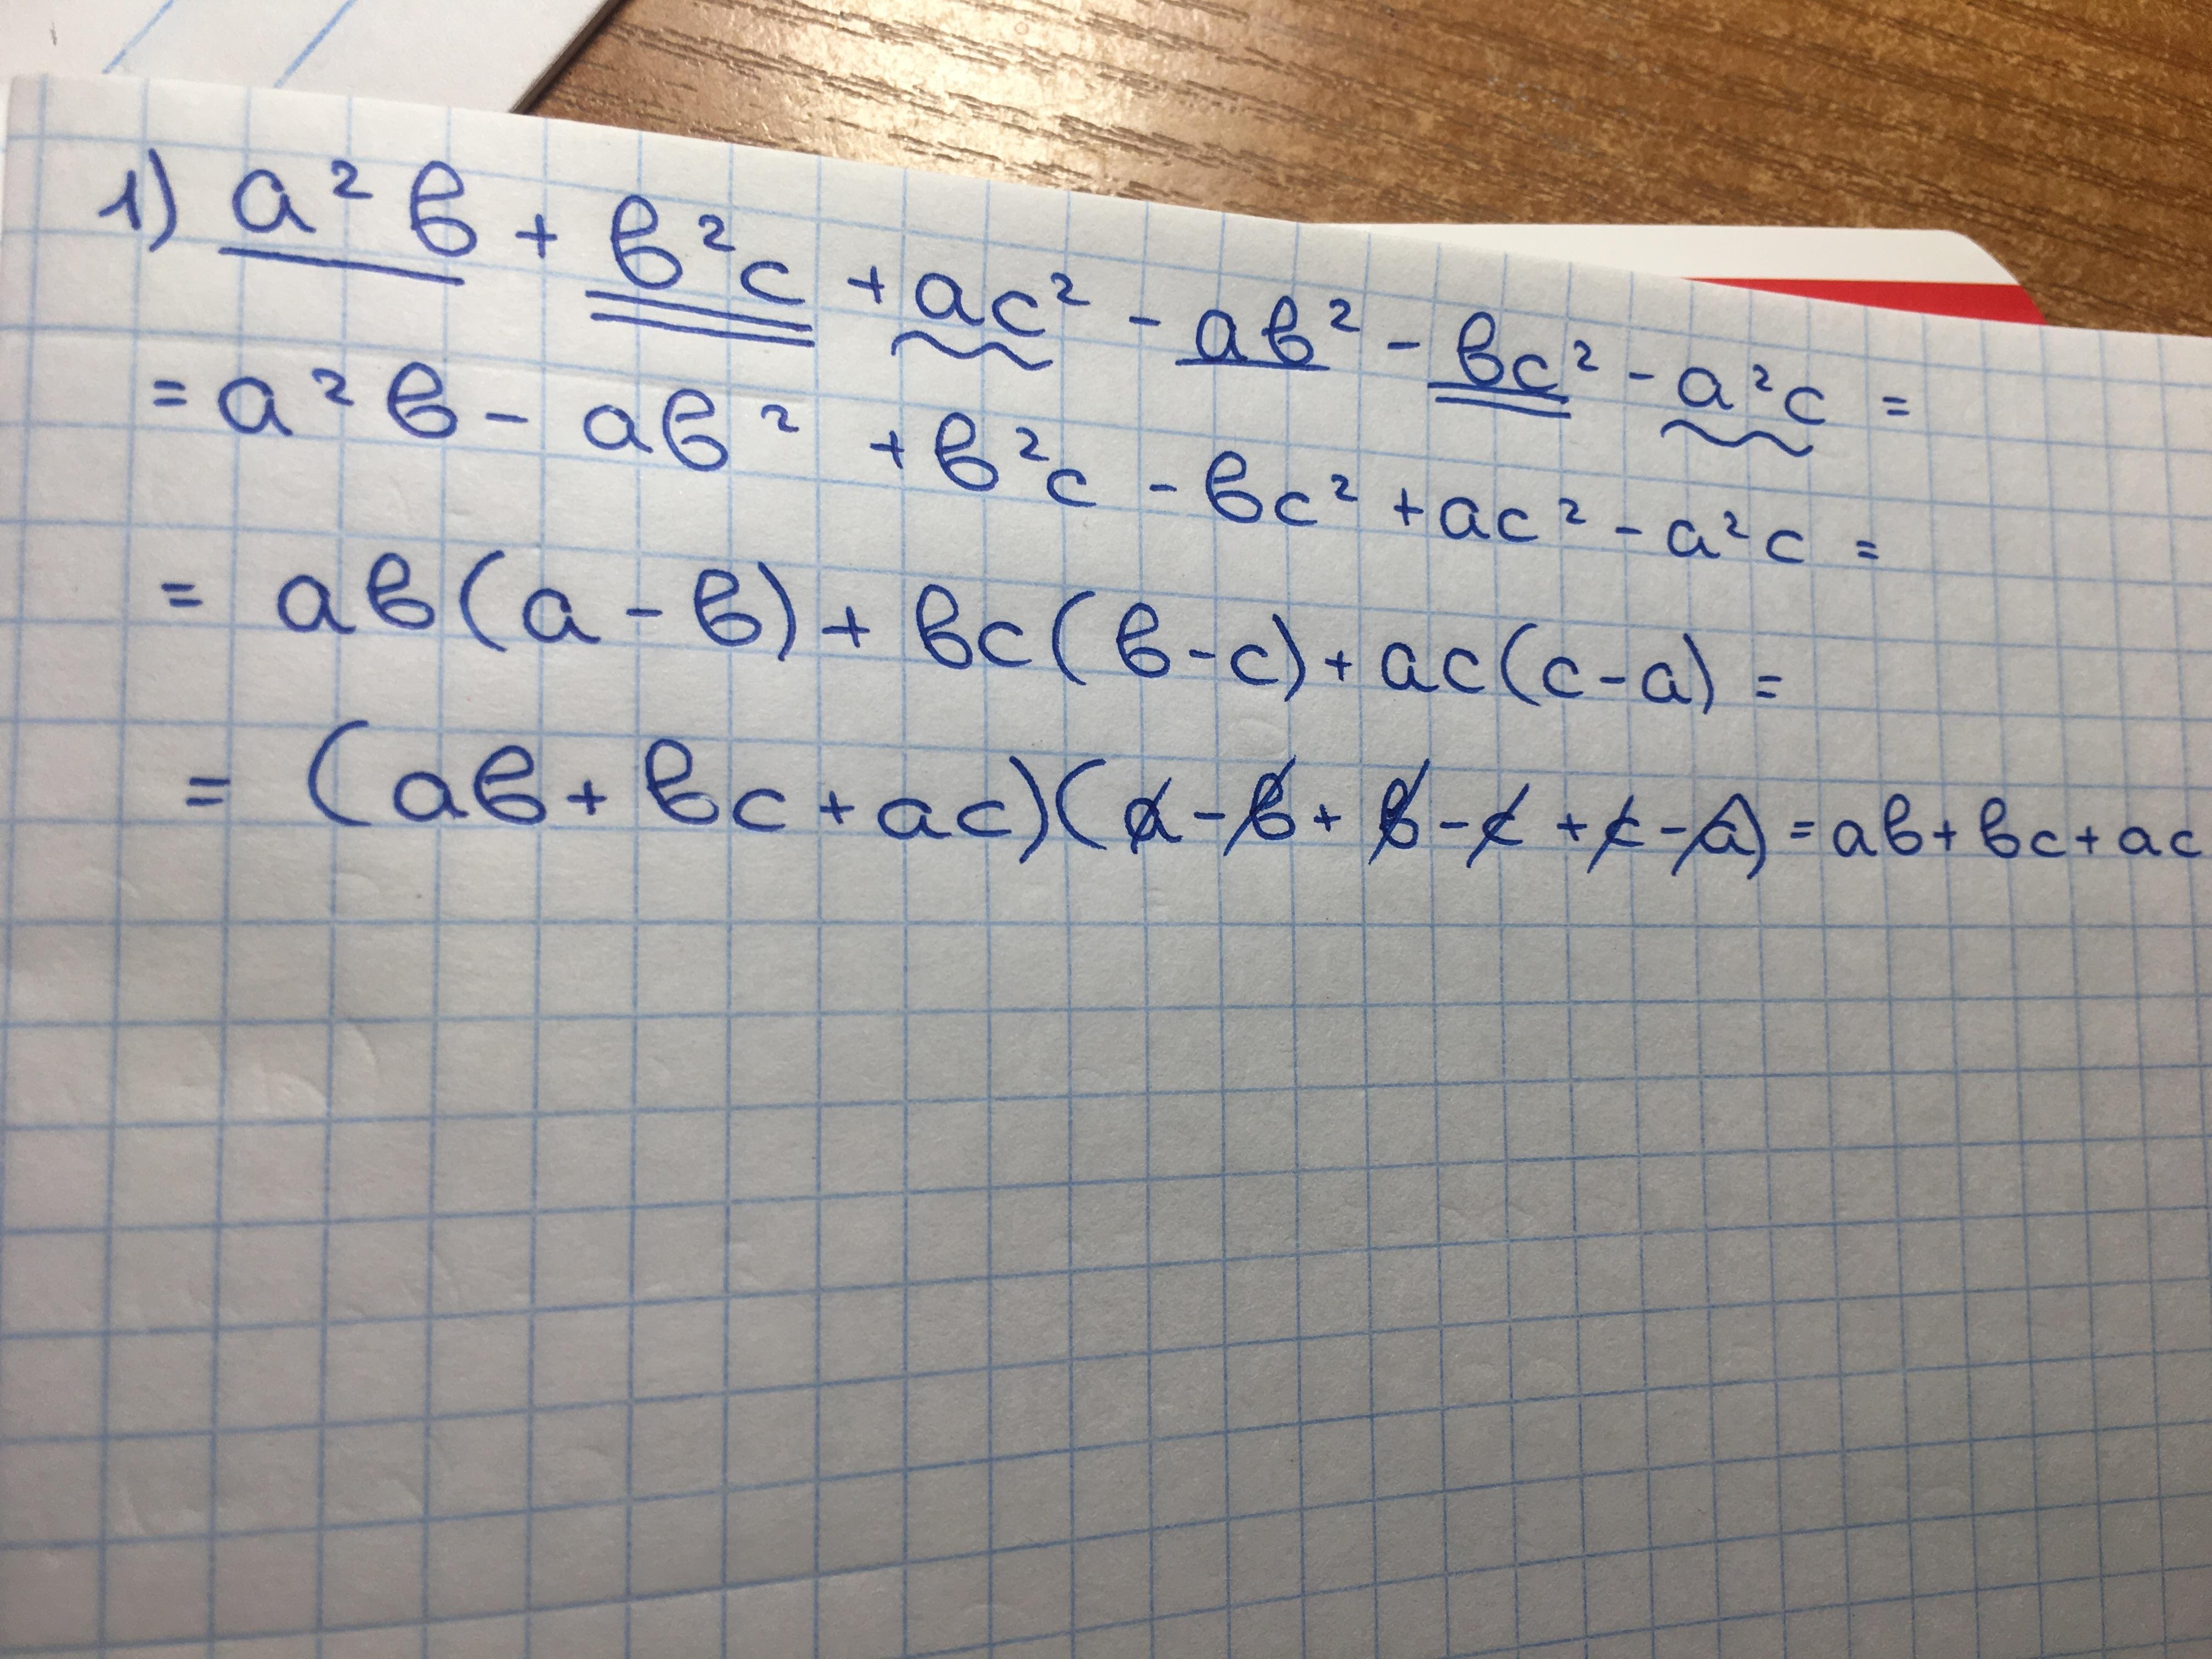 1) a² в + в²c + ac² - aв² - вc² - a²c =
= a² в - aв² + в²c - вc² + ac² - a²c =
= aв(a - в) + вc(в - c) + ac(c - a) =
= (aв + вc + ac)(a - в + в - c + c - a) = aв + вc + ac